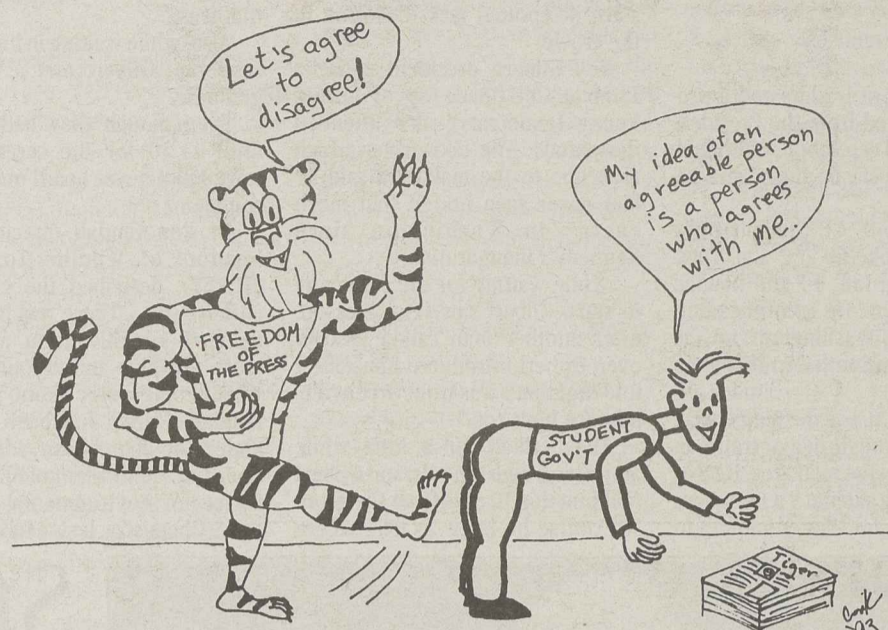 Let's agree
to
disagree!
My idea of an
agreeable person
is a person
who agrees
with me.
FREEDOM
OF
THE PRESS
STUDENT
GOV'T
Tiger